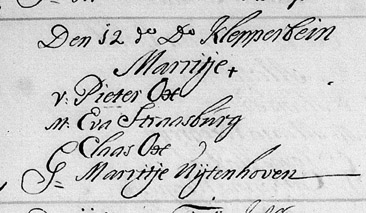 Den 12 do Do Klepperbein
Marritje +
v: Pieter Ox
M: Eva Straasburg
G Claas Ox
G= Marritje Uÿtenhoven